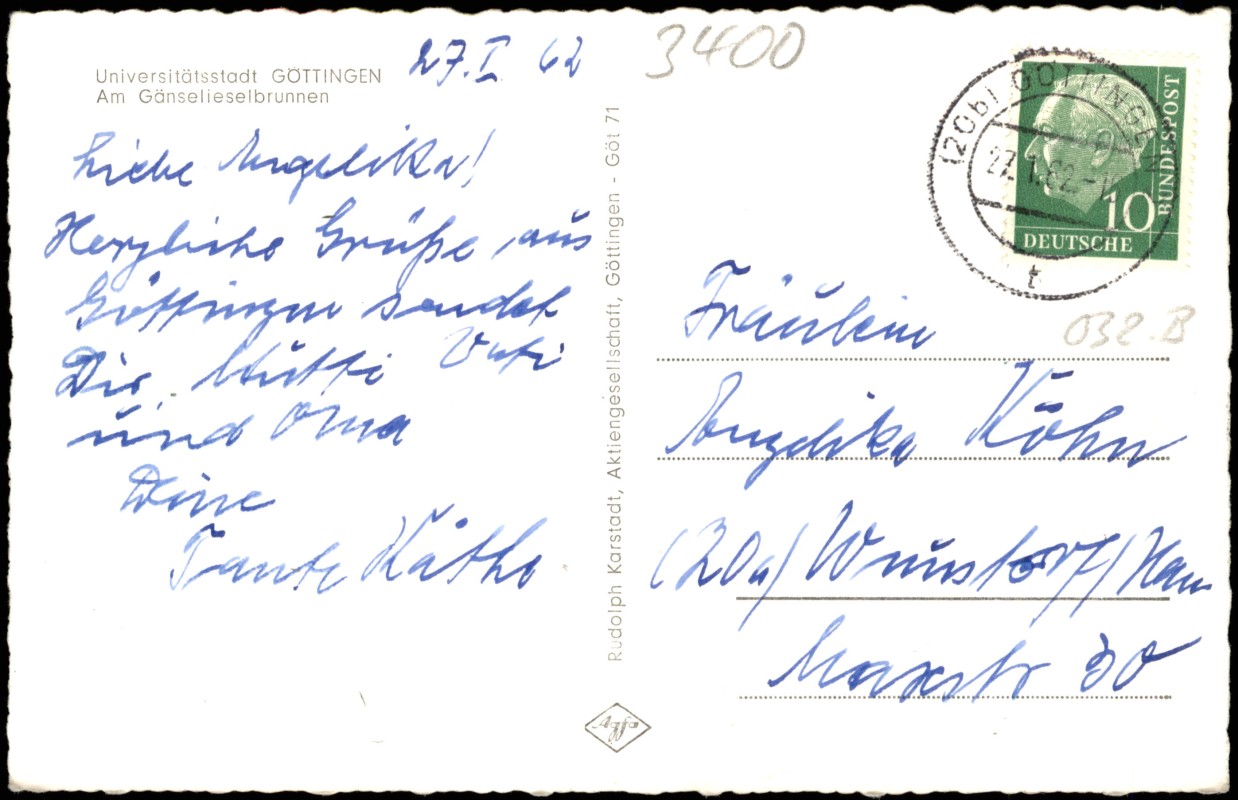 Universitätsstadt GÖTTINGEN
Am Gänselieselbrunnen
27.I. 62
Liebe Angelika!
Herzliche Grüße aus
Göttingen sendet
Dir, Mutti Vati
und Oma
Deine
Tante Käthe
Rudolph Karstadt, Aktiengesellschaft, Göttingen - Göt 71
Agfa
3400
(20b) GÖTTINGEN
27.1.62
t
BUNDESPOST
10
DEUTSCHE
032 B
Fräulein
Angelika Köhn
(20a) Wunstorf/Han
Maxstr 30